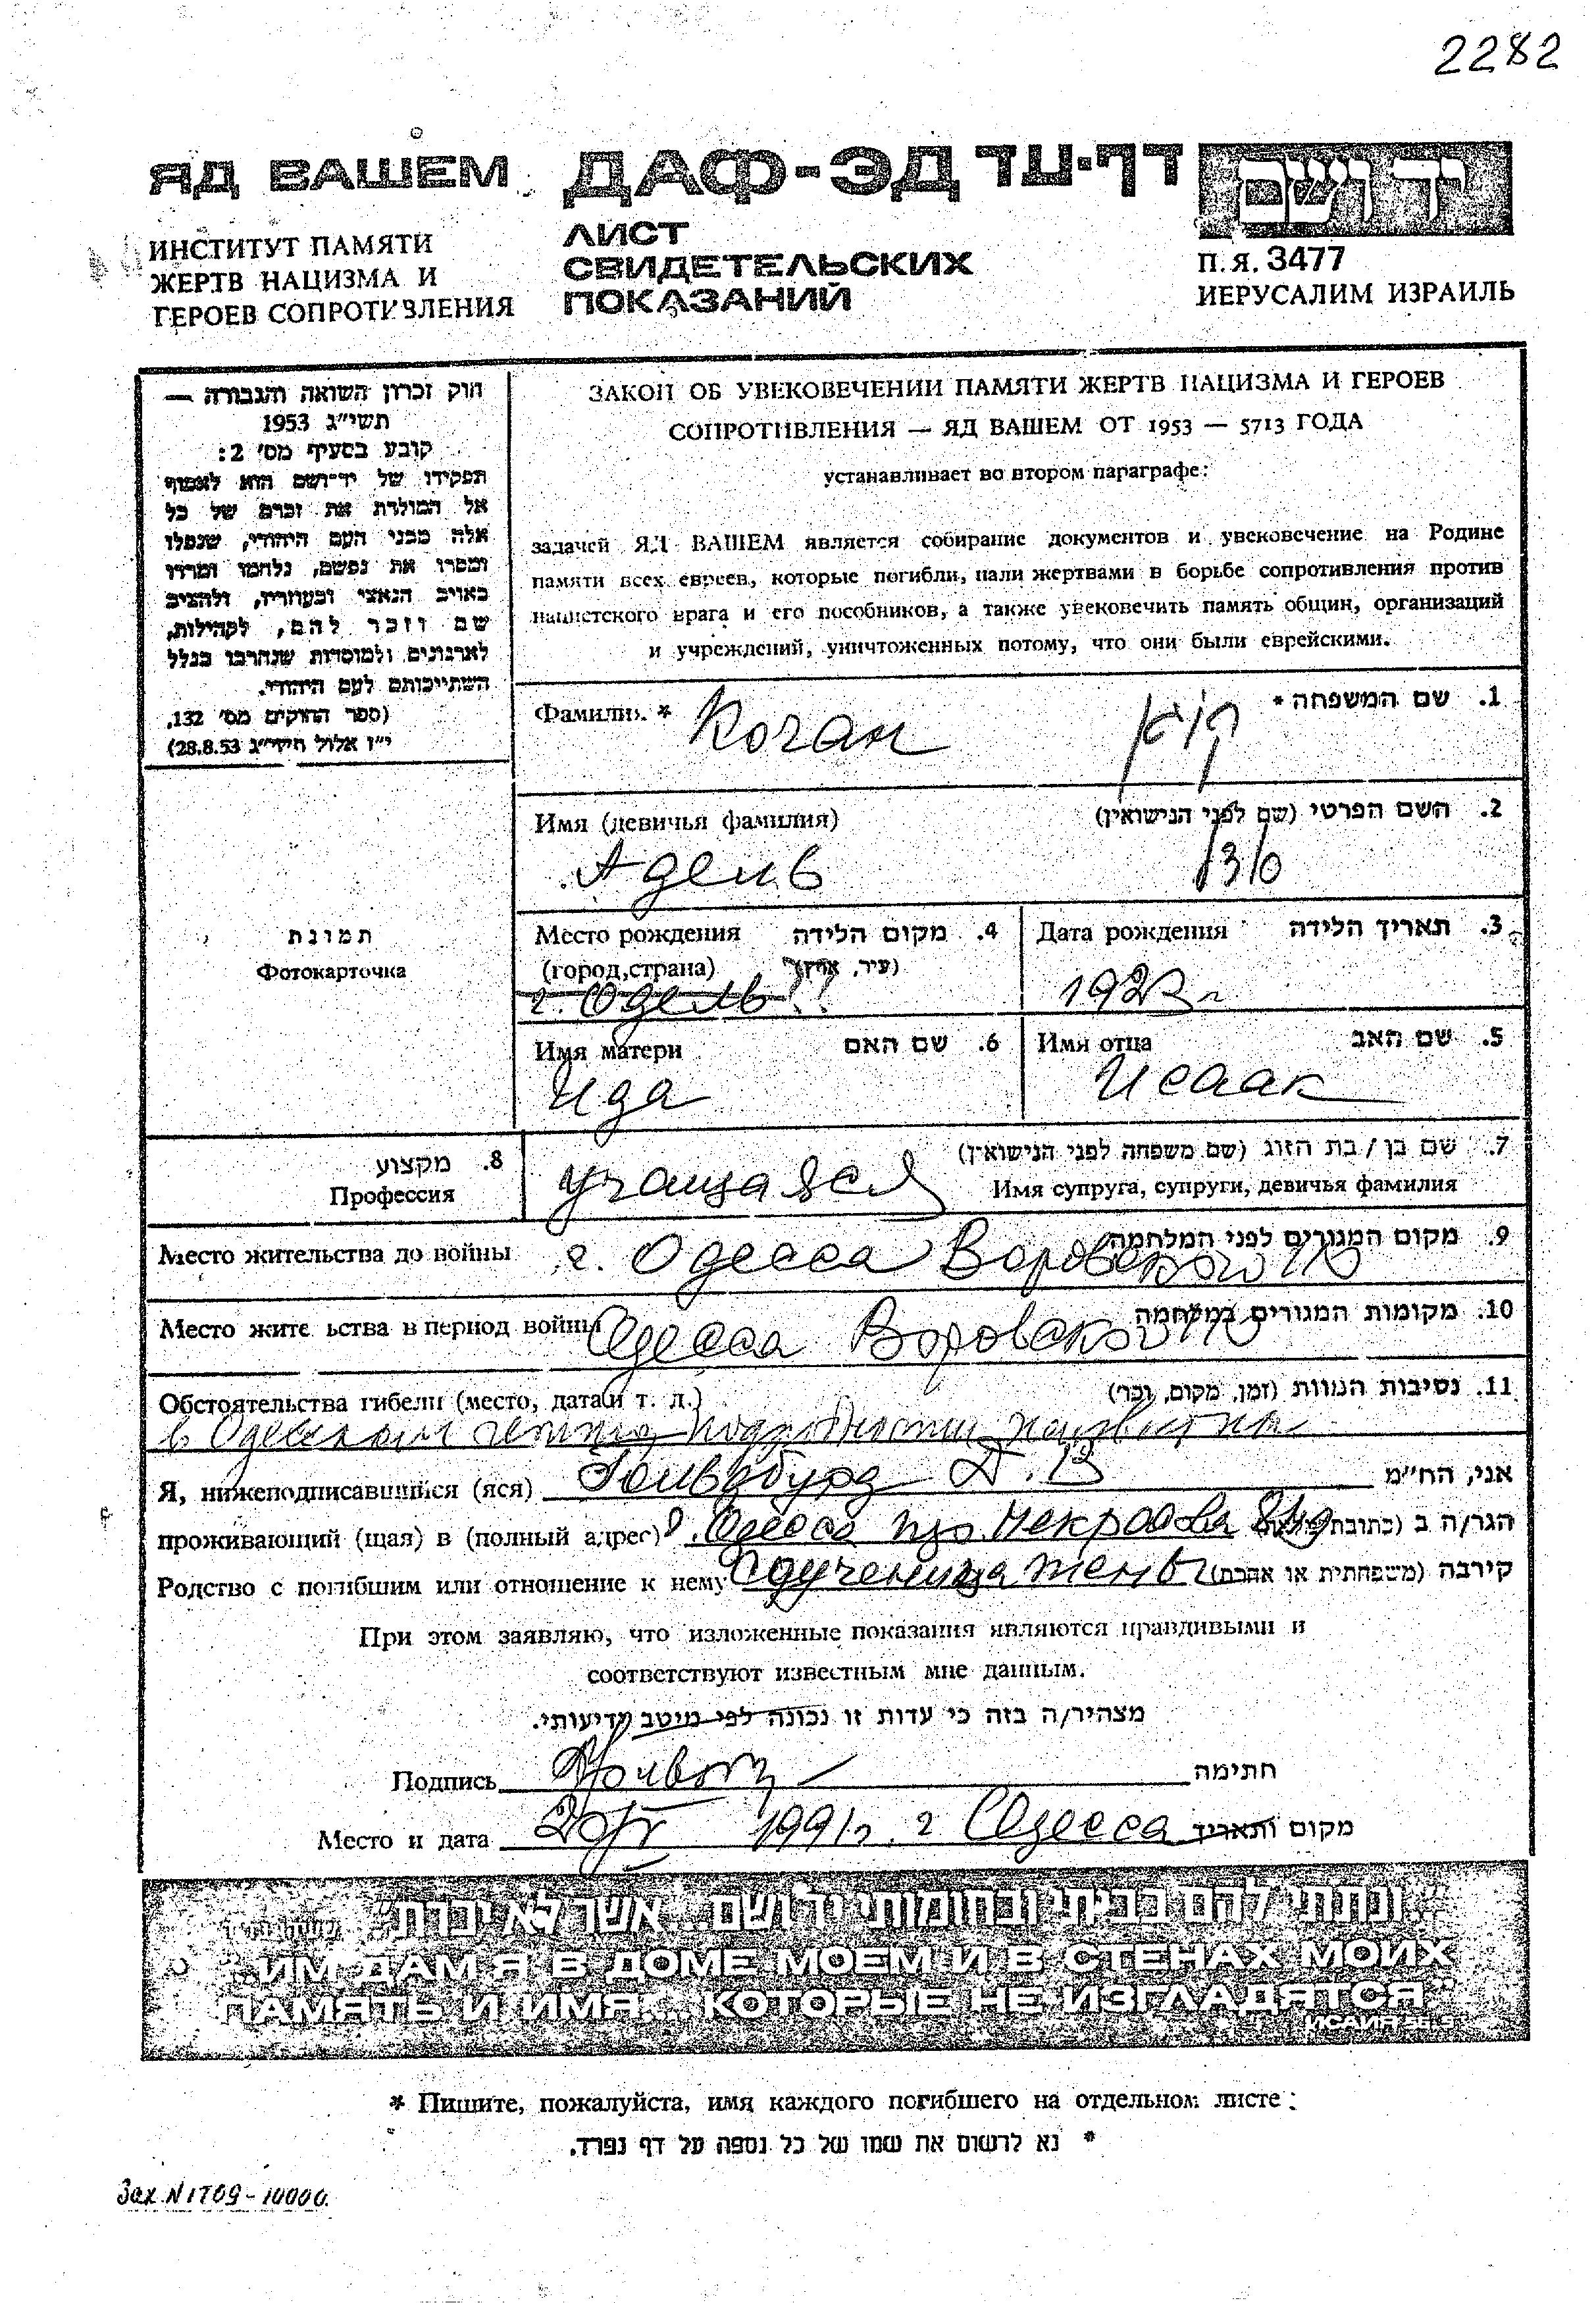 2282
ЯД ВАШЕМ
ИНСТИТУТ ПАМЯТИ
ЖЕРТВ НАЦИЗМА И
ГЕРОЕВ СОПРОТИВЛЕНИЯ
ДАФ-ЭД דף-עד
ЛИСТ
СВИДЕТЕЛЬСКИХ
ПОКАЗАНИЙ
יד ושם
П.Я. 3477
ИЕРУСАЛИМ ИЗРАИЛЬ
חוק זכרון השואה והגבורה —
תשי״ג 1953
קובע בסעיף מס׳ 2:
תפקידו של יד-ושם הוא לאסוף
אל המולדת את זכרם של כל
אלה מבני העם היהודי, שנפלו
ומסרו את נפשם, נלחמו ומרדו
באויב הנאצי ובעוזריו, ולהציב
שם וזכר להם, לקהילות,
לארגונים ולמוסדות שנהרבו בגלל
השתייכותם לעם היהודי.
(ספר החוקים מס׳ 132,
י״ז אלול תשי״ג 28.8.53)
ЗАКОН ОБ УВЕКОВЕЧЕНИИ ПАМЯТИ ЖЕРТВ НАЦИЗМА И ГЕРОЕВ
СОПРОТИВЛЕНИЯ — ЯД ВАШЕМ ОТ 1953 — 5713 ГОДА
устанавливает во втором параграфе:
задачей ЯД ВАШЕМ является собирание документов и увековечение на Родине
памяти всех евреев, которые погибли, пали жертвами в борьбе сопротивления против
нацистского врага и его пособников, а также увековечить память общин, организаций
и учреждений, уничтоженных потому, что они были еврейскими.
Фамилия * Коган קוגן 1. שם המשפחה *
Имя (девичья фамилия) 2. השם הפרטי (שם לפני הנישואין)
Адель
תמונת
Фотокарточка
Место рождения 4. מקום הלידה
(город, страна) (עיר, ארץ)
г. Одель !!
Дата рождения 3. תאריך הלידה
1923 г
Имя матери 6. שם האם
Ида
Имя отца 5. שם האב
Исаак
8. מקצוע
Профессия
учащаяся
7. שם בן / בת הזוג (שם משפחה לפני הנישואין)
Имя супруга, супруги, девичья фамилия
Место жительства до войны г. Одесса Воровского 9. מקום המגורים לפני המלחמה
Место жите ьства в период войны Одесса Воровского 10. מקומות המגורים במלחמה
Обстоятельства гибели (место, дата и т. д.) 11. נסיבות המוות (זמן, מקום, וכו׳)
в Одесском гетто подробности
Я, нижеподписавшийся (яся) Гольдбурд Д. В אני, הח״מ
проживающий (щая) в (полный адрес) Одесса Некрасова הגר/ה ב
Родство с погибшим или отношение к нему жены קירבה (משפחתית או אחרת)
При этом заявляю, что изложенные показания являются правдивыми и
соответствуют известным мне данным.
מצהיר/ה בזה כי עדות זו נכונה לפי מיטב ידיעותי.
Подпись חתימה
Место и дата 20/V 1991 г. г Одесса מקום ותאריך
״...ונתתי להם בביתי ובחומותי יד ושם... אשר לא יכרת״
"...ИМ ДАМ Я В ДОМЕ МОЕМ И В СТЕНАХ МОИХ
ПАМЯТЬ И ИМЯ... КОТОРЫЕ НЕ ИЗГЛАДЯТСЯ."
ИСАИЯ 56, 5
* Пишите, пожалуйста, имя каждого погибшего на отдельном листе:
* נא לרשום את שמו של כל נספה על דף נפרד.
Зак N 1709-10000.